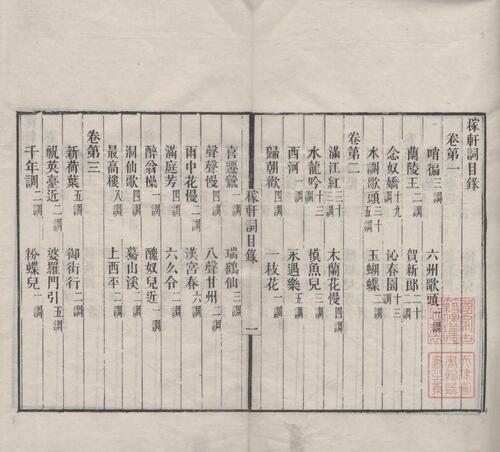 稼軒詞目錄
卷第一
哨徧三調　六州歌頭一調
蘭陵王二調　賀新郎二十調
念奴嬌十九調　沁春園十三調
水調歌頭三十五調　玉蝴蝶二調
卷第二
滿江紅三十三調　木蘭花慢四調
水龍吟十三調　摸魚兒三調
西河一調　永遇樂五調
歸朝歡四調　一枝花一調
喜遷鶯一調　瑞鶴仙三調
聲聲慢四調　八聲甘州二調
雨中花慢二調　漢宮春六調
滿庭芳四調　六么令二調
醉翁操一調　醜奴兒近一調
洞仙歌四調　驀山溪二調
最高樓八調　上西平二調
卷第三
新荷葉五調　御街行二調
祝英臺近二調　婆羅門引五調
千年調二調　粉蝶兒一調
稼軒詞目錄　一